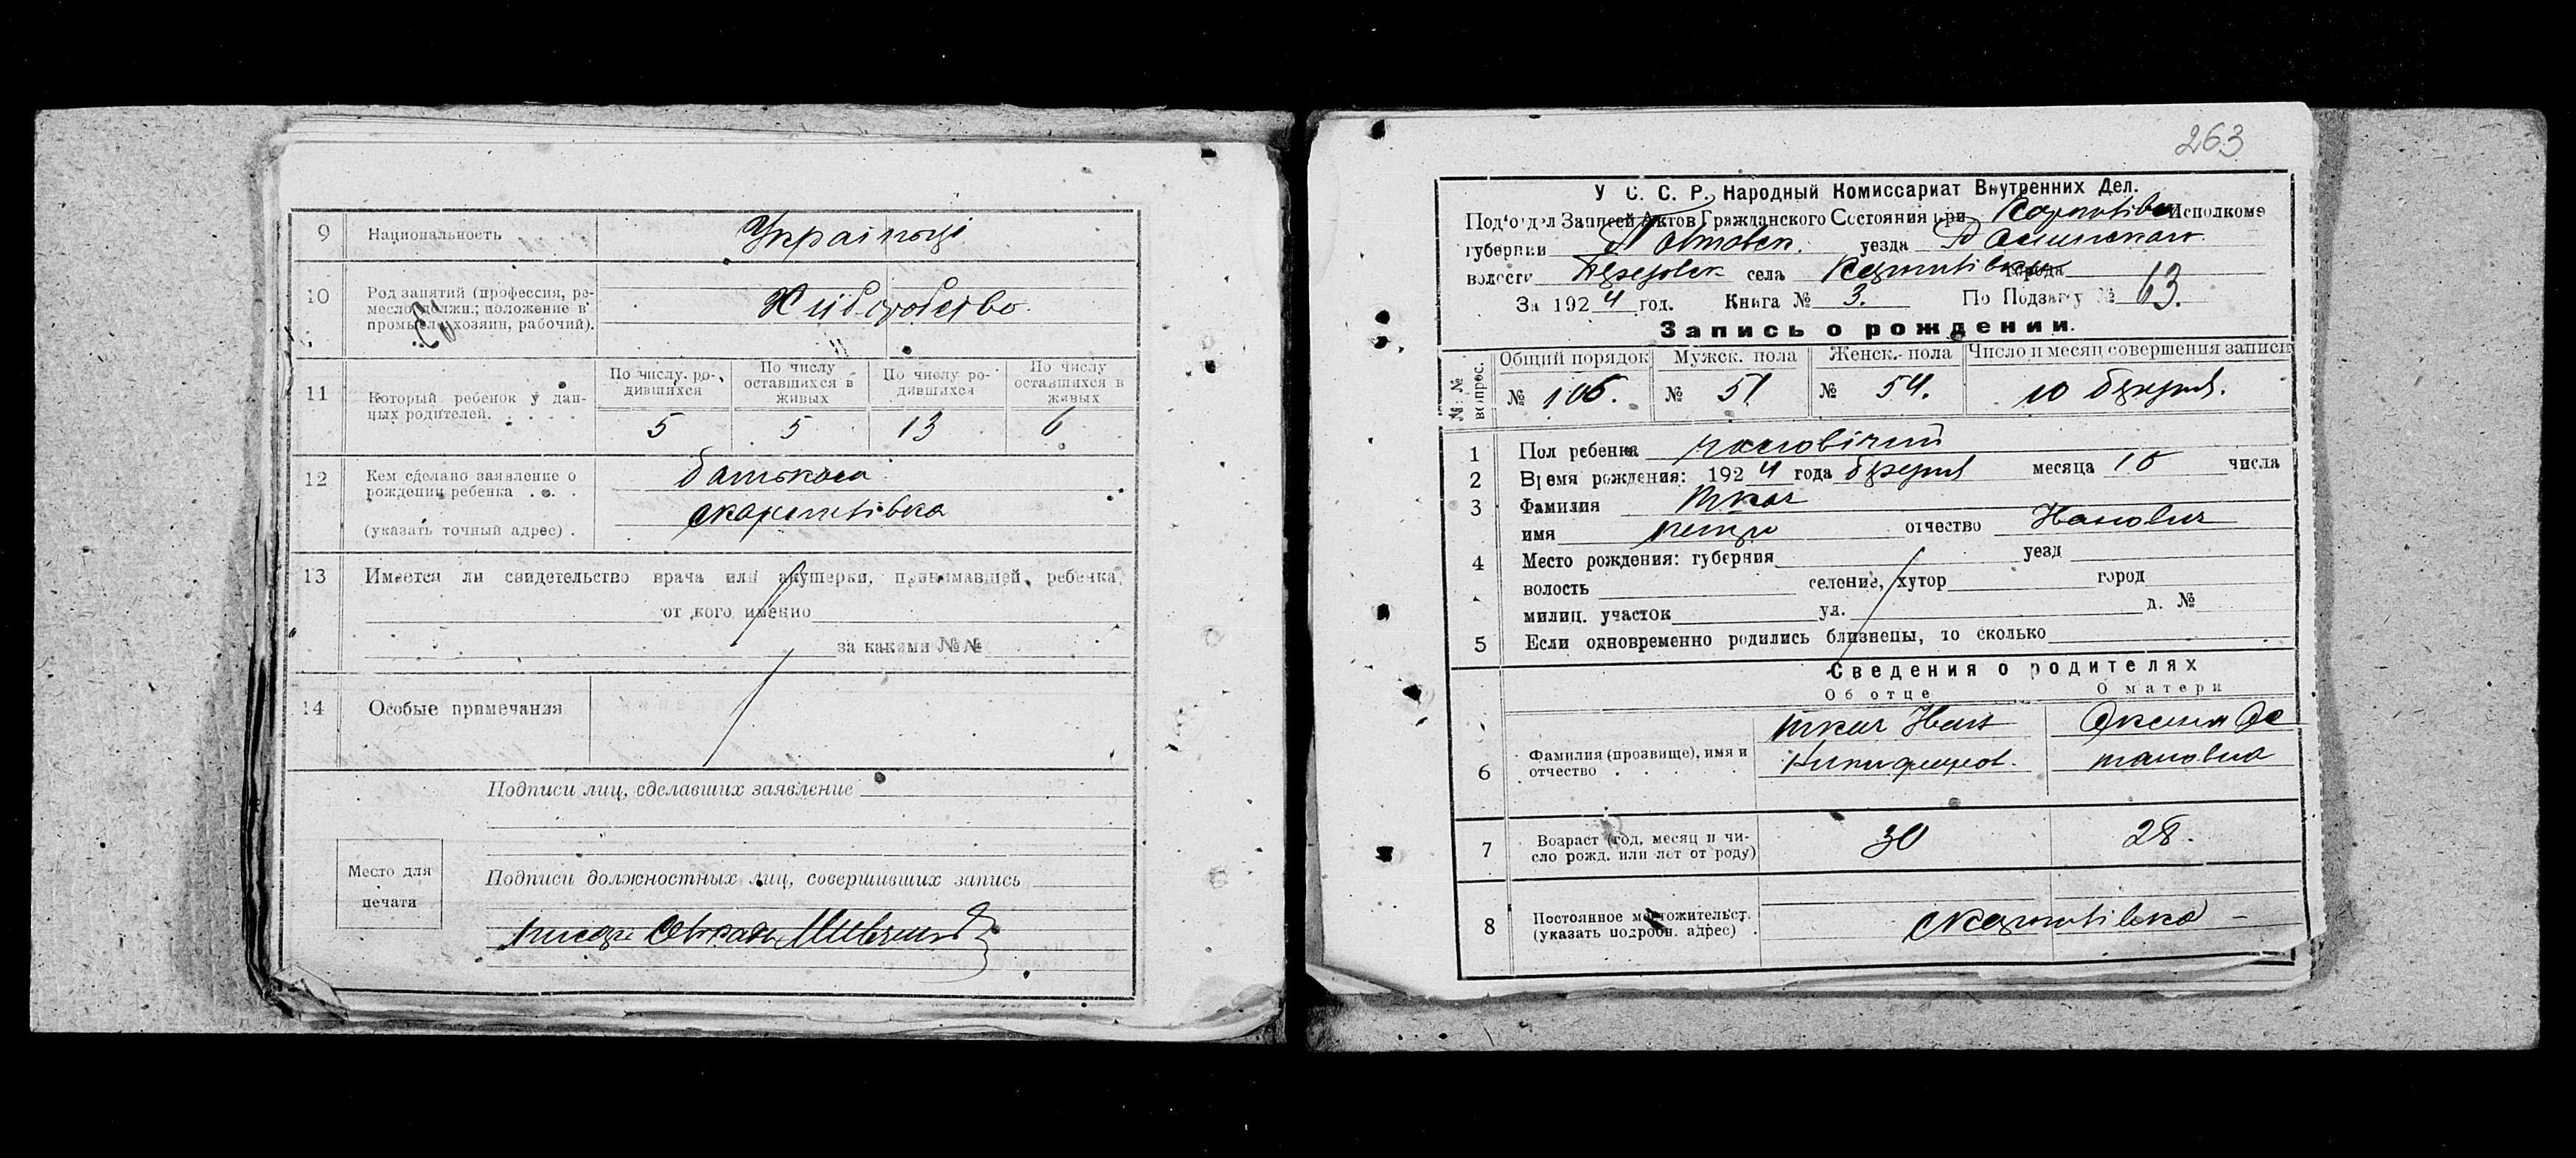 9 Национальность Українці
10 Род занятий (профессия, ре-
месло, должн.; положение в
промысле, хозяин, рабочий). Хліборобство.
11 Который ребенок у дан-
ных родителей.
По числу ро-
дившихся
По числу
оставшихся в
живых
По числу ро-
дившихся
По числу
оставшихся в
живых
5 5 13 6
12 Кем сделано заявление о
рождении ребенка
(указать точный адрес).
батьком
13 Имеется ли свидетельство врача или акушерки, принимавшей ребенка,
от кого именно
за какими №№
14 Особые примечания
Подписи лиц, сделавших заявление
Место для
печати
Подписи должностных лиц, совершивших запись
263
У. С. С. Р. Народный Комиссариат Внутренних Дел.
Подотдел Записей Актов Гражданского Состояния при Исполкоме
губернии уезда
волости села города
За 1924 год. Книга № 3. По Подзагсу № 13.
Запись о рождении.
№№ вопрос.
Общий порядок Мужск. пола Женск. пола Число и месяц совершения записи
№ № 51 № 54. 10
1 Пол ребенка чоловічий
2 Время рождения: 1924 года месяца 10 числа
3 Фамилия Ткач
имя Петро отчество Іванович
4 Место рождения: губерния уезд
волость селение, хутор город
милиц. участок ул. д. №
5 Если одновременно родились близнецы, то сколько
Сведения о родителях
Об отце О матери
6 Фамилия (прозвище), имя и
отчество
Ткач Іван
7 Возраст (год, месяц и чи-
сло рожд. или лет от роду) 30 28.
8 Постоянное местожительст.
(указать подробн. адрес)